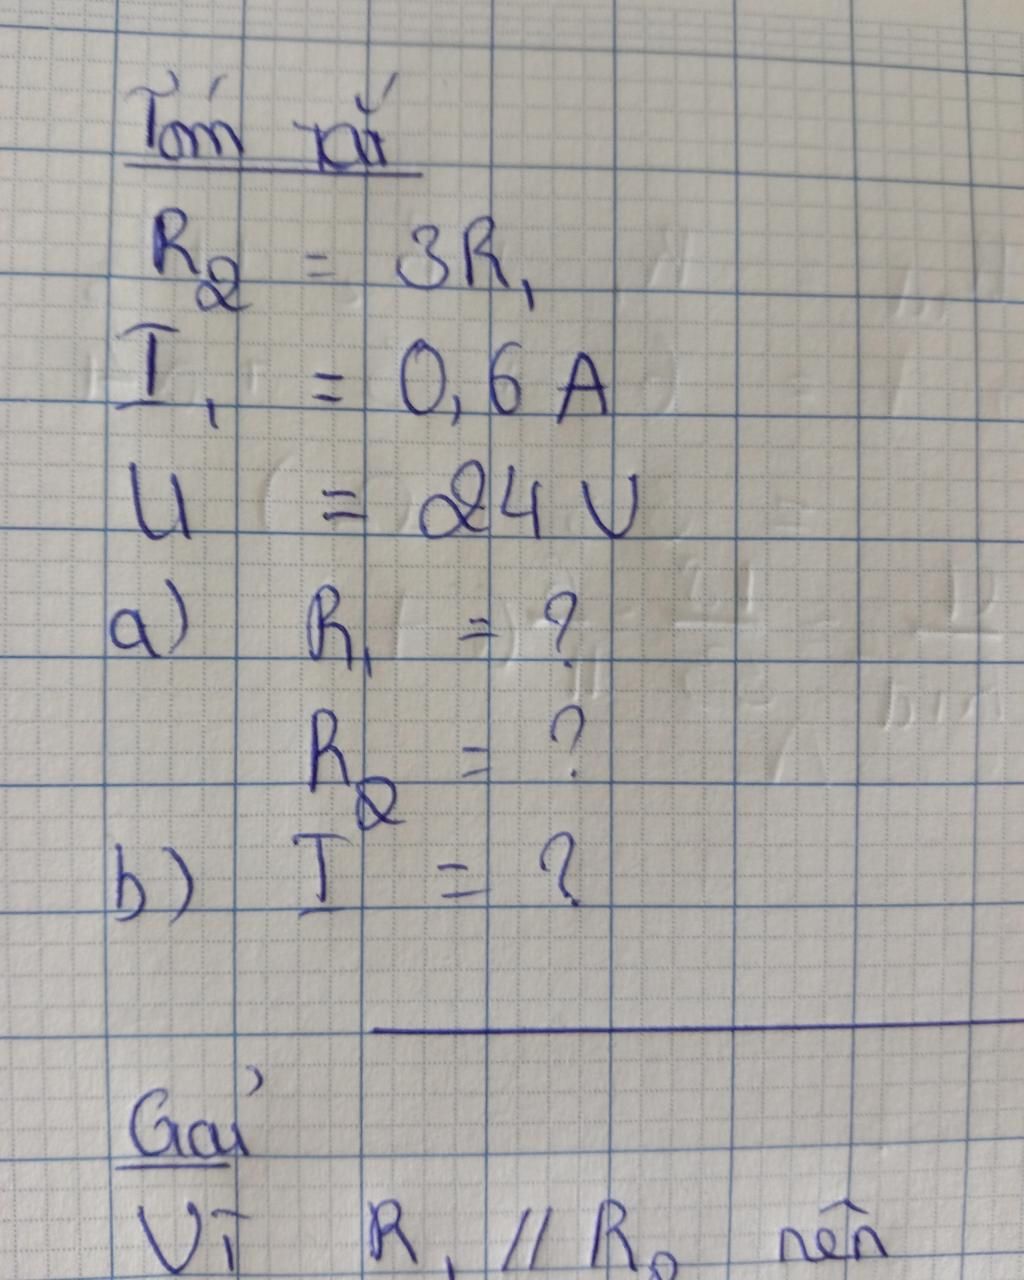 Tóm tắt
R₂ = 3R₁
I₁ = 0,6 A
U = 24 V
a) R₁ = ?
R₂ = ?
b) I = ?
Giải
Vì R₁ // R₂ nên